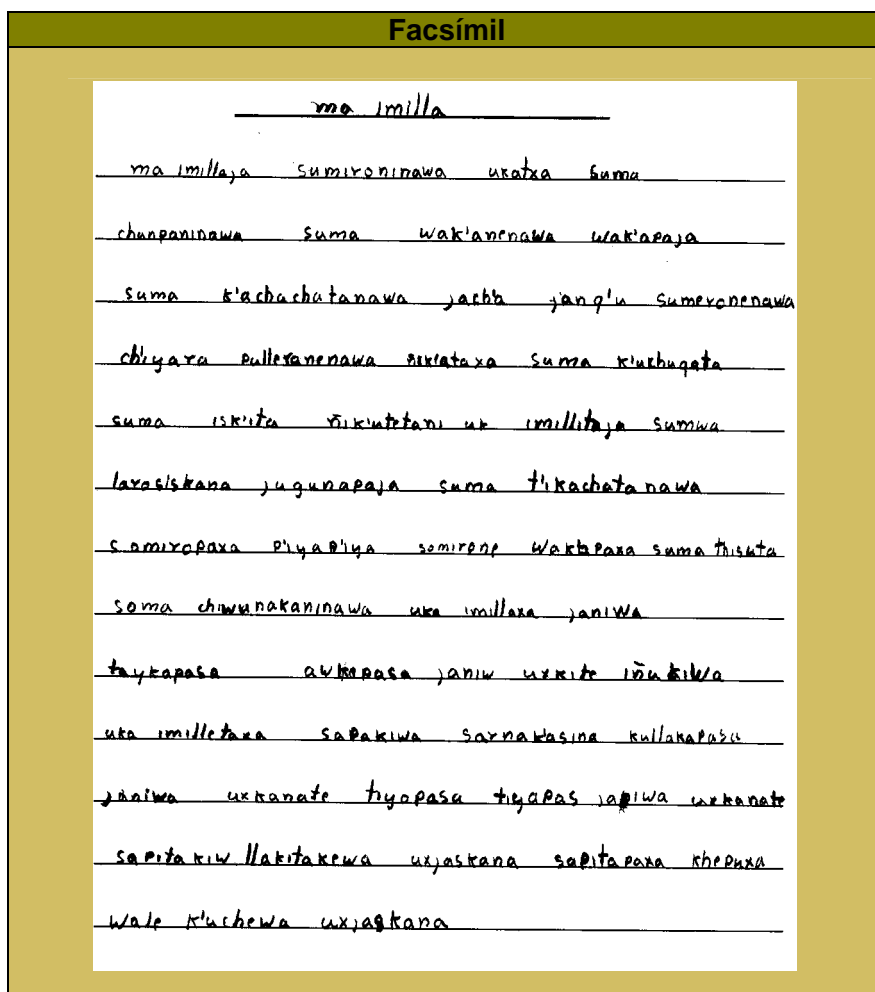 Facsímil
ma imilla
ma imillaja sumironinawa ukatxa suma
chunpaninawa suma wak'anenawa wak'apaja
suma k'achachatanawa jach'a janq'u sumeronenawa
ch'iyara pulleranenawa suma k'ukhuqata
suma isk'ita ñik'utetani uk imillitaja sumwa
larosiskana jugunapaja suma t'ikachatanawa
somiropaxa p'iyap'iya somirone suma thisuta
soma chiwunakaninawa uka imillaxa janiwa
taykapasa awkepasa janiw uxkite iñukiwa
uka imilletaxa sapakiwa sarnakasina kullakapasa
janiwa uxkanate tiyopasa tiyapas janiwa uxkanate
sapitakiw llakitakewa uxjaskana sapitapaxa khepuxa
wale k'uchewa uxjaskana